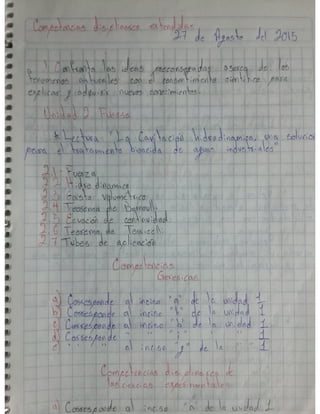 Competencias disciplinares extendidas
27 de Agosto del 2015
1. Confronta las ideas preconcebidas acerca de los
fenomenos naturales con el conocimiento cientifico para
explicar y adquirir nuevos conocimientos.
Unidad 2 Fuerza
* Lectura "La Cavitación hidrodinamica, una solucion
para el tratamiento biocida de aguas industriales"
2.1 Fuerza
2.2 Hidrodinamica
2.3 Gasto volumetrico
2.4 Teorema de Bernoulli
2.5 Ecuacion de continuidad
2.6 Teorema de Torricelli
2.7 Tubos de aplicación
Competencias
Genericas
a) Corresponde al inciso "a" de la unidad 1
b) Corresponde al inciso "b" de la unidad 1
c) Corresponde al inciso de la unidad 1
d) Corresponde " " " 1
e) " al inciso de la " 1
Competencias disciplinares de
las ciencias experimentales
a) Corresponde al inciso "a" de la unidad 1